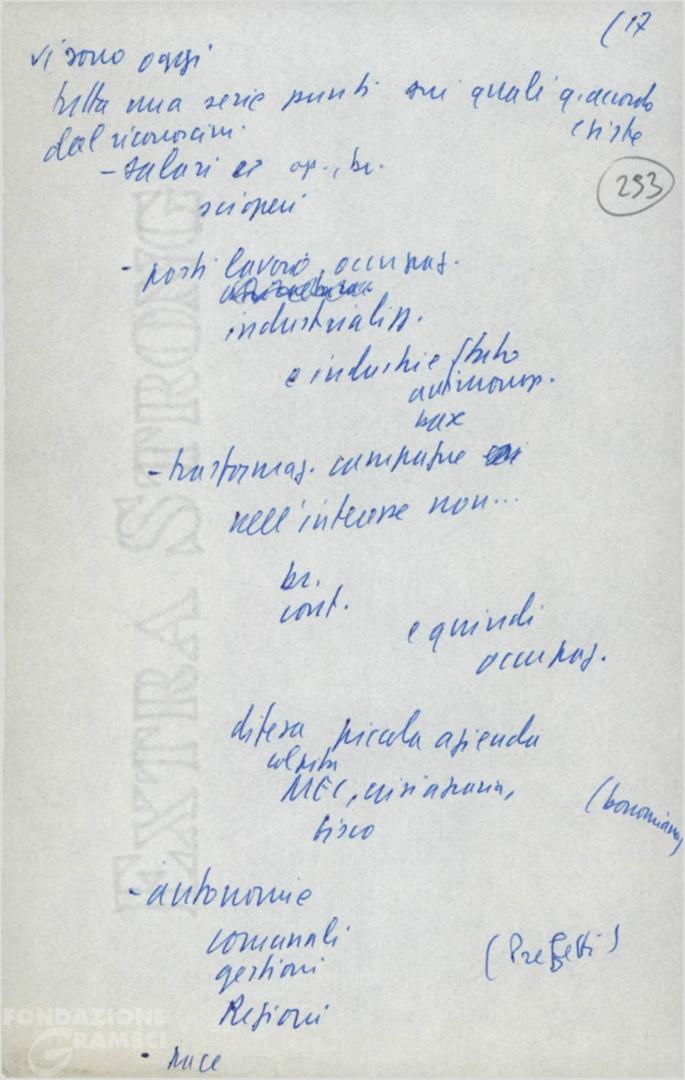 (17
vi sono oggi
tutta una serie punti sui quali q. accordo
del riconoscim. esiste
293
- salari et op., br.
scioperi
- posti lavoro, occupaz.
industrializz.
e industrie Stato
antimonop.
- trasformaz. campagne
nell'interesse non...
br.
cont.
e quindi
occupaz.
difesa piccola azienda
colpita
MEC, crisi agraria,
(bonomiana)
fisco
- autonomie
comunali
gestioni
(Prefetti)
Regioni
- pace
EXTRA STRONG
FONDAZIONE
GRAMSCI